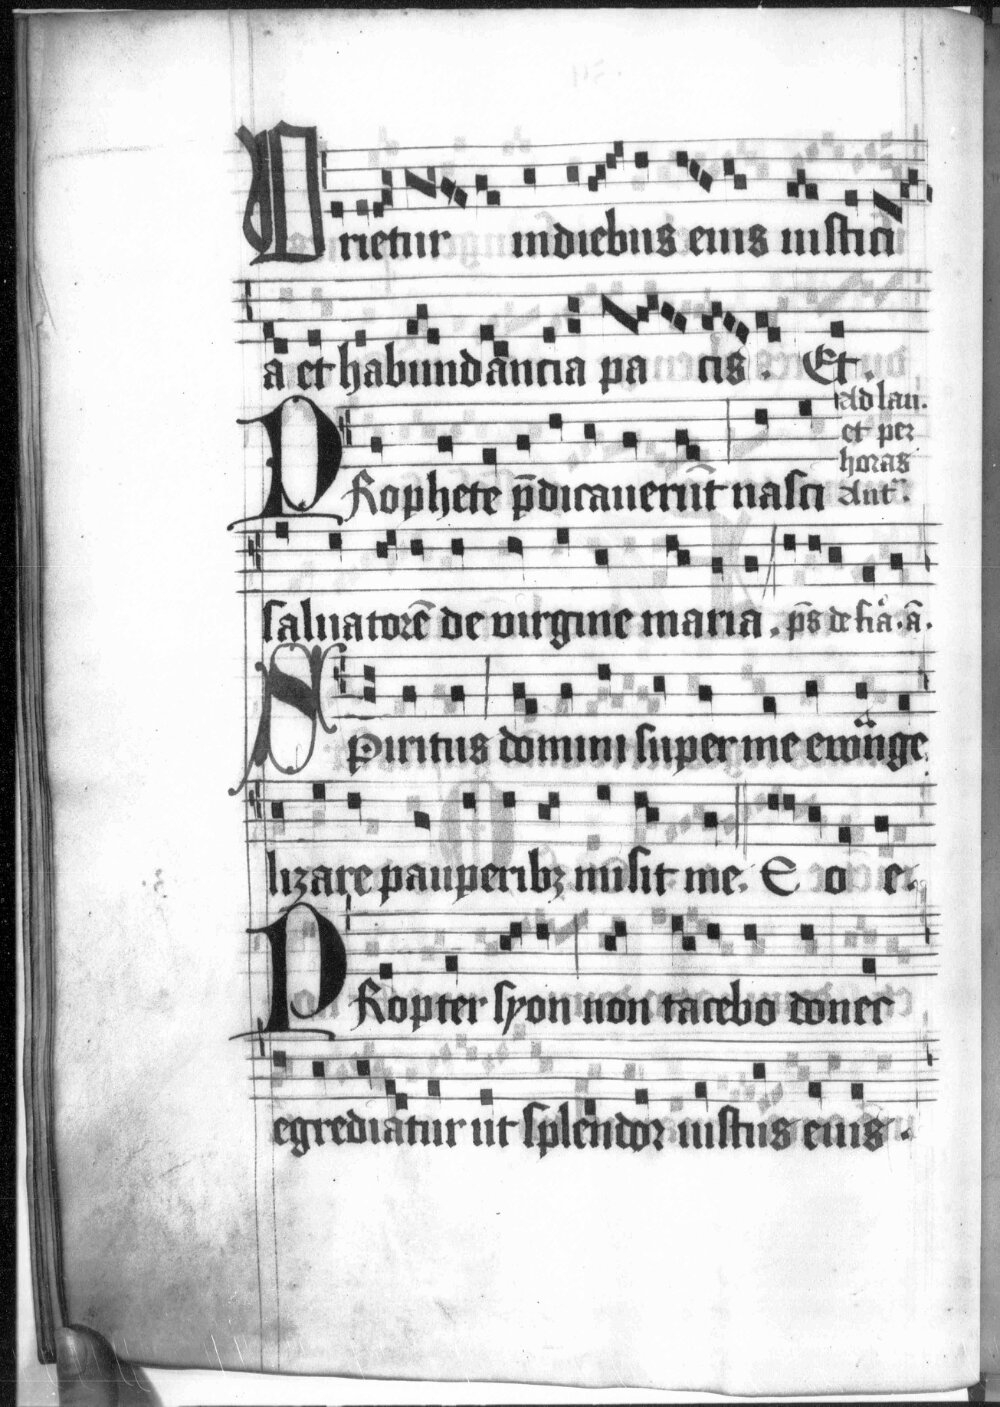 Orietur in diebus eius iustici
a et habundancia pa cis . Et .
Ad lau.
et per
horas
Ant̃.
PRophete p̄dicauerūt nasci
saluatorē de virgine maria . p̄s de fr̄ia . ā .
SPiritus domini super me ewange
lizare pauperibꝫ misit me . E o e .
PRopter syon non tacebo donec
egrediatur ut splendor iustus eius .